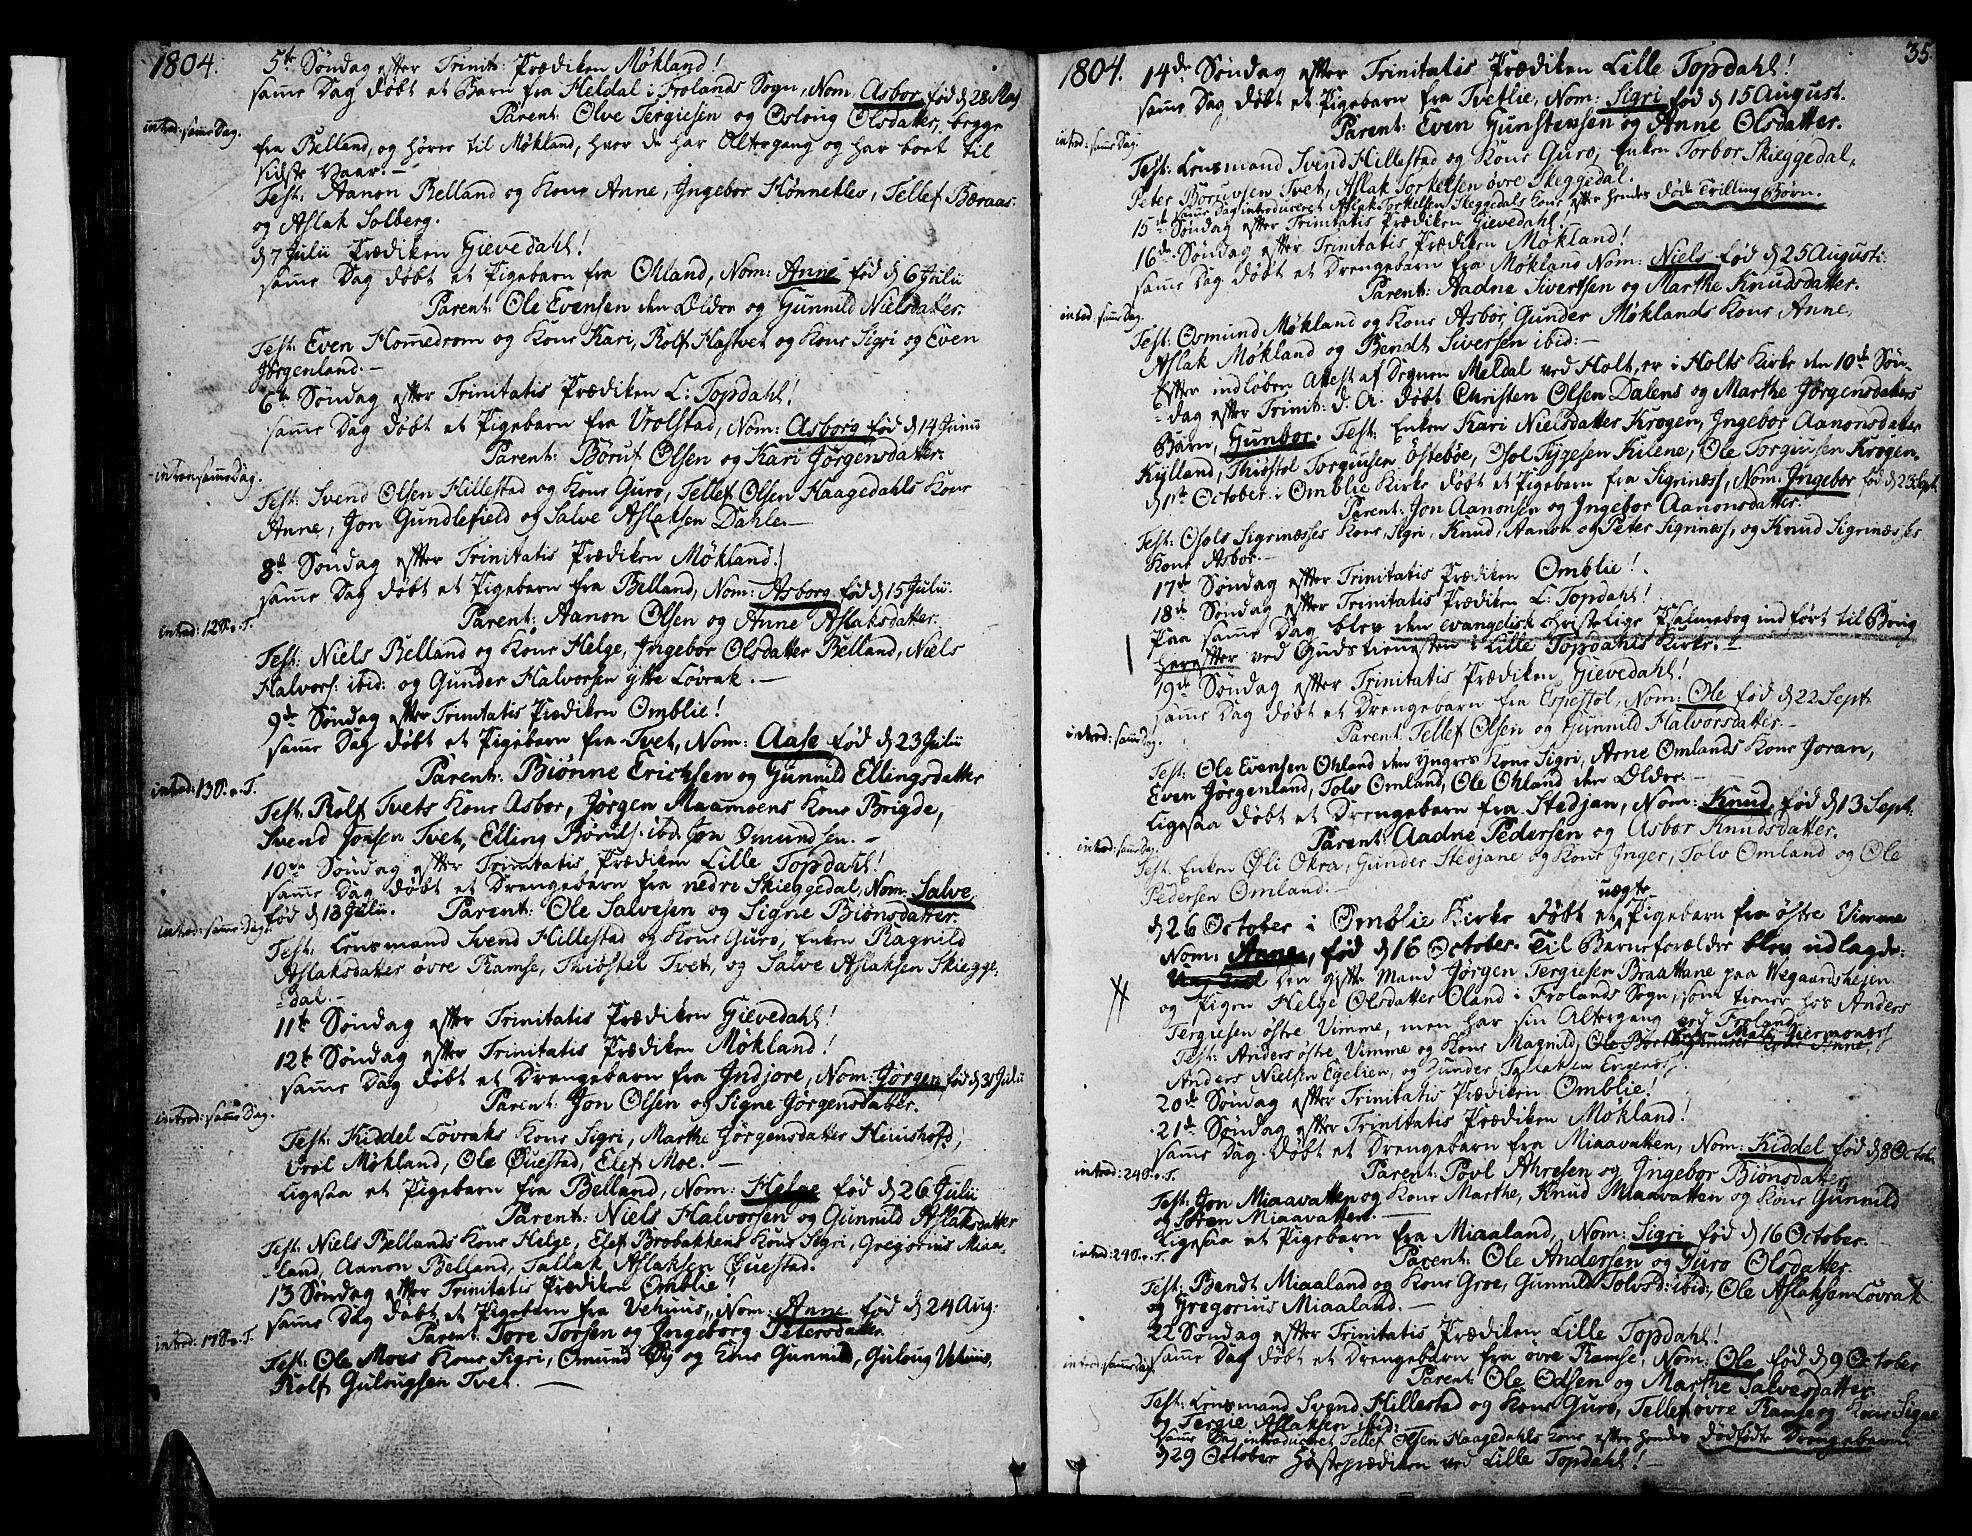 1804.
5te Søndag efter Trinit: Prædiken Møkland!
samme Dag døbt et Barn fra Heldal i Frolands Sogn, Nom: Asbor, fød d 28 Maj
Parent: Olve Tergiesen og Osloug Olsdatter, begge
introd: samme Dag.
fra Belland, og hører til Møkland, hvor de har Altergang og har boet til
sidste Vaar. –
Test: Aanon Belland og Kone Anne, Ingebor Hønneklev, Tellef Beraas
og Aslak Solberg.
d 7 Julii Prædiken Gievedahl!
samme Dag døbt et Pigebarn fra Ohland, Nom: Anne fød d 6 Julii
Parent: Ole Evensen den Ældre og Gunnild Nielsdatter.
Test: Even Hommedrom og Kone Kari, Rolf Hastvet og Kone Sigri og Even
Jørgenland. –
6te Søndag efter Trinitatis Prædiken L: Topdahl!
samme Dag døbt et Pigebarn fra Vrolstad, Nom: Asborg fød d 14 Junii
Parent: Børuf Olsen og Kari Jørgensdatter.
intro: samme Dag.
Test: Svend Olsen Hillestad og Kone Guro, Tellef Olsen Haagedahls Kone
Anne, Jon Gundlefield og Salve Aslaksen Dahle. –
8de Søndag efter Trinitatis Prædiken Møkland!
samme Dag døbt et Pigebarn fra Belland, Nom: Asborg fød d 15 Julii.
Parent: Aanon Olsen og Anne Aslaksdatter.
introd: 12 S. e. T.
Test: Niels Belland og Kone Helge, Ingebor Olsdatter Belland, Niels
Halvors: ibid: og Gunder Halvorsen ytte Løvrak. –
9de Søndag efter Trinitatis Prædiken Omblie!
samme Dag døbt et Pigebarn fra Tvet, Nom: Aase fød d 23 Julii
Parent: Biønne Erichsen og Gunnild Ellingsdatter
introd: 13 S. e. T.
Test: Rolf Tvets Kone Asbor, Jørgen Maamoens Kone Brigde,
Svend Jonsen Tvet, Elling Børuls: ibd: Jon Omundsen. –
10de Søndag efter Trinitatis Prædiken Lille Topdahl!
samme Dag døbt et Drengebarn fra nedre Skieggedal, Nom: Salve,
fød d 18 Julii. Parent: Ole Salvesen og Signe Biønsdatter.
introd: samme Dag.
Test: Lensmand Svend Hillestad og Kone Guro, Enken Ragnild
Aslaksdatter øvre Ramse, Thiøstel Tvet, og Salve Aslaksen Skiegge,
-dal. –
11te Søndag efter Trinitatis Prædiken Gievedahl!
12te Søndag efter Trinitatis Prædiken Møkland!
samme Dag døbt et Drengebarn fra Indjore, Nom: Jørgen fød d 31 Julii
Parent: Jon Olsen og Signe Jørgensdatter.
introd: samme Dag.
Test: Kiddel Lovraks Kone Sigri, Marthe Jørgensdatter Huushofd,
Vrol Møkland, Ole Øuestad, Elef Moe. –
Ligesaa et Pigebarn fra Belland, Nom: Helge fød d 26 Julii
Parent: Niels Halvorsen og Gunnild Aslaksdatter
Test: Niels Bellands Kone Helge, Elef Brobakkens Kone Sigri, Gregorius Miaa-
-land, Aanon Belland, Tallak Aslaksen Øuestad.
13 Søndag efter Trinitatis Prædiken Omblie!
samme Dag døbt et Pigebarn fra Vehuus, Nom: Anne fød d 24 Aug:
Parent: Tore Torsen og Ingeborg Petersdatter.
introd: 17 S. e. T.
Test: Ole Moes Kone Sigri, Omund Øy og Kone Gunnild, Guloug Vehuus,
Rolf Gulougsen Tvet. –
35.
1804. 14de Søndag efter Trinitatis Prædiken Lille Topdahl!
samme Dag døbt et Pigebarn fra Tvetlie, Nom: Sigri fød d 15 August.
Parent: Even Gunstensen og Anne Olsdatter.
introd: samme Dag.
Test: Lensmand Svend Hillestad og Kone Guro, Enken Torbor Skieggedal,
Peter Børufsen Tvet, Aslak Torkelsen øvre Skeggedal.
samme Dag introduceret Aslak Torkelsen Skeggedals Kone efter hendes døde Trilling Børn.
15de Søndag efter Trinitatis Prædiken Gievedahl!
16de Søndag efter Trinitatis Prædiken Møkland!
samme Dag døbt et Drengebarn fra Møkland Nom: Niels fød d 25 Augusti
Parent: Aadne Sivertsen og Marthe Knudsdatter.
introd: samme Dag.
Test: Osmund Møkland og Kone Asbor, Gunder Møklands Kone Anne,
Aslak Møkland og Bendt Siversen ibid: –
Efter indløben Attest af Sr. Meldal ved Holt, er i Holts Kirke den 10de Søn-
-dag efter Trinit: d: A: døbt Christen Olsen Dalens og Marthe Jørgensdatters
Barn, Gunbor. Test: Enken Kari Nielsdatter Krogen, Ingebor Aanonsdatter
Kylland, Thiøstol Torgiussen Østebøe, Osol Tygesen Kilene, Ole Torgiussen Krogen.
d 11te October i Omblie Kirke døbt et Pigebarn fra Sigrinæss, Nom: Ingebor fød d 23 Sept.
Parent: Jon Aanonsen og Ingebor Aanonsdatter.
Test: Osols Sigrinæsses Kone Sigri, Knud, Aanon og Peter Sigrinæss, og Knud Sigrinæsses
Kone Asbor. –
17de Søndag efter Trinitatis Prædiken Omblie!
18de Søndag efter Trinitatis Prædiken L: Topdahl!
Paa samme Dag blev den evangelisk christelige Psalmebog indført til Brug
herefter ved Gudstienesten i Lille Topdahls Kirke.
19de Søndag efter Trinitatis Prædiken Gievedahl!
samme Dag døbt et Drengebarn fra Espestøl, Nom: Ole fød d 22 Sept
Parent: Tellef Olsen og Gunnild Halvorsdatter. –
introd: samme Dag.
Test: Ole Evensen Ohland den Yngres Kone Sigri, Arne Omlands Kone Joran,
Even Jørgenland, Tolv Omland, Ole Ohland den Ældre. –
Ligesaa døbt et Drengebarn fra Stedjan, Nom: Knud, fød d 13 Sept:
Parent: Aadne Pedersen og Asbor Knudsdatter.
introd: samme Dag.
Test: Enken Øli Okra, Gunder Stedjane og Kone Inger, Tolv Omland og Ole
Pedersen Omland. –
uægte
d 26 October i Omblie Kirke døbt et Pigebarn fra østre Vimme
Nom: Anne, fød d 16 October. Til Barneforældre blev udlagde:
den gifte Mand Jørgen Tergiesen Braattane paa Wegaardsheien
og Pigen Helge Olsdatter Oland i Frolands Sogn, som tiener hos Anders
Tergiesen østre Vimme, men har sin Altergang ved Froland.
Test: Anders østre Vimme og Kone Magnild,
Anders Nielsen Egelien, og Gunder
20de Søndag efter Trinitatis Prædiken Omblie!
21de Søndag efter Trinitatis Prædiken Møkland!
samme Dag døbt et Drengebarn fra Miaavatten, Nom: Kiddel fød d 8 Octobr
Parent: Povl Ahresen og Ingebor Biønsdatter
introd: 24 S. e. T.
Test: Jon Miaavatten og Kone Marthe, Knud Miaavatten og Kone Gunnild
og Søren Miaavatten. –
Ligesaa et Pigebarn fra Miaaland, Nom: Sigri fød d 16 October.
Parent: Ole Andersen og Guro Olsdatter.
introd: 24 S. e. T.
Test: Bendt Miaaland og Kone Groe, Gunnild Tolvsd: ibid:, Ole Aslaksen Lovrak
og Gregorius Miaaland. –
22 Søndag efter Trinitatis Prædiken Lille Topdahl!
samme Dag døbt et Drengebarn fra øvre Ramse, Nom: Ole fød d 9 October
Parent: Ole Odsen og Marthe Salvesdatter.
introd: samme Dag
Test: Lensmand Svend Hillestad og Kone Guro, Tellef øvre Ramse og Kone Signe
og Tergie Aslaksen ibid:
samme Dag introduceret Tellef Olsen Haagedahls Kone efter hendes dødfødte Drengebarn.
d 29 October Høsteprædiken ved Lille Topdahl! –